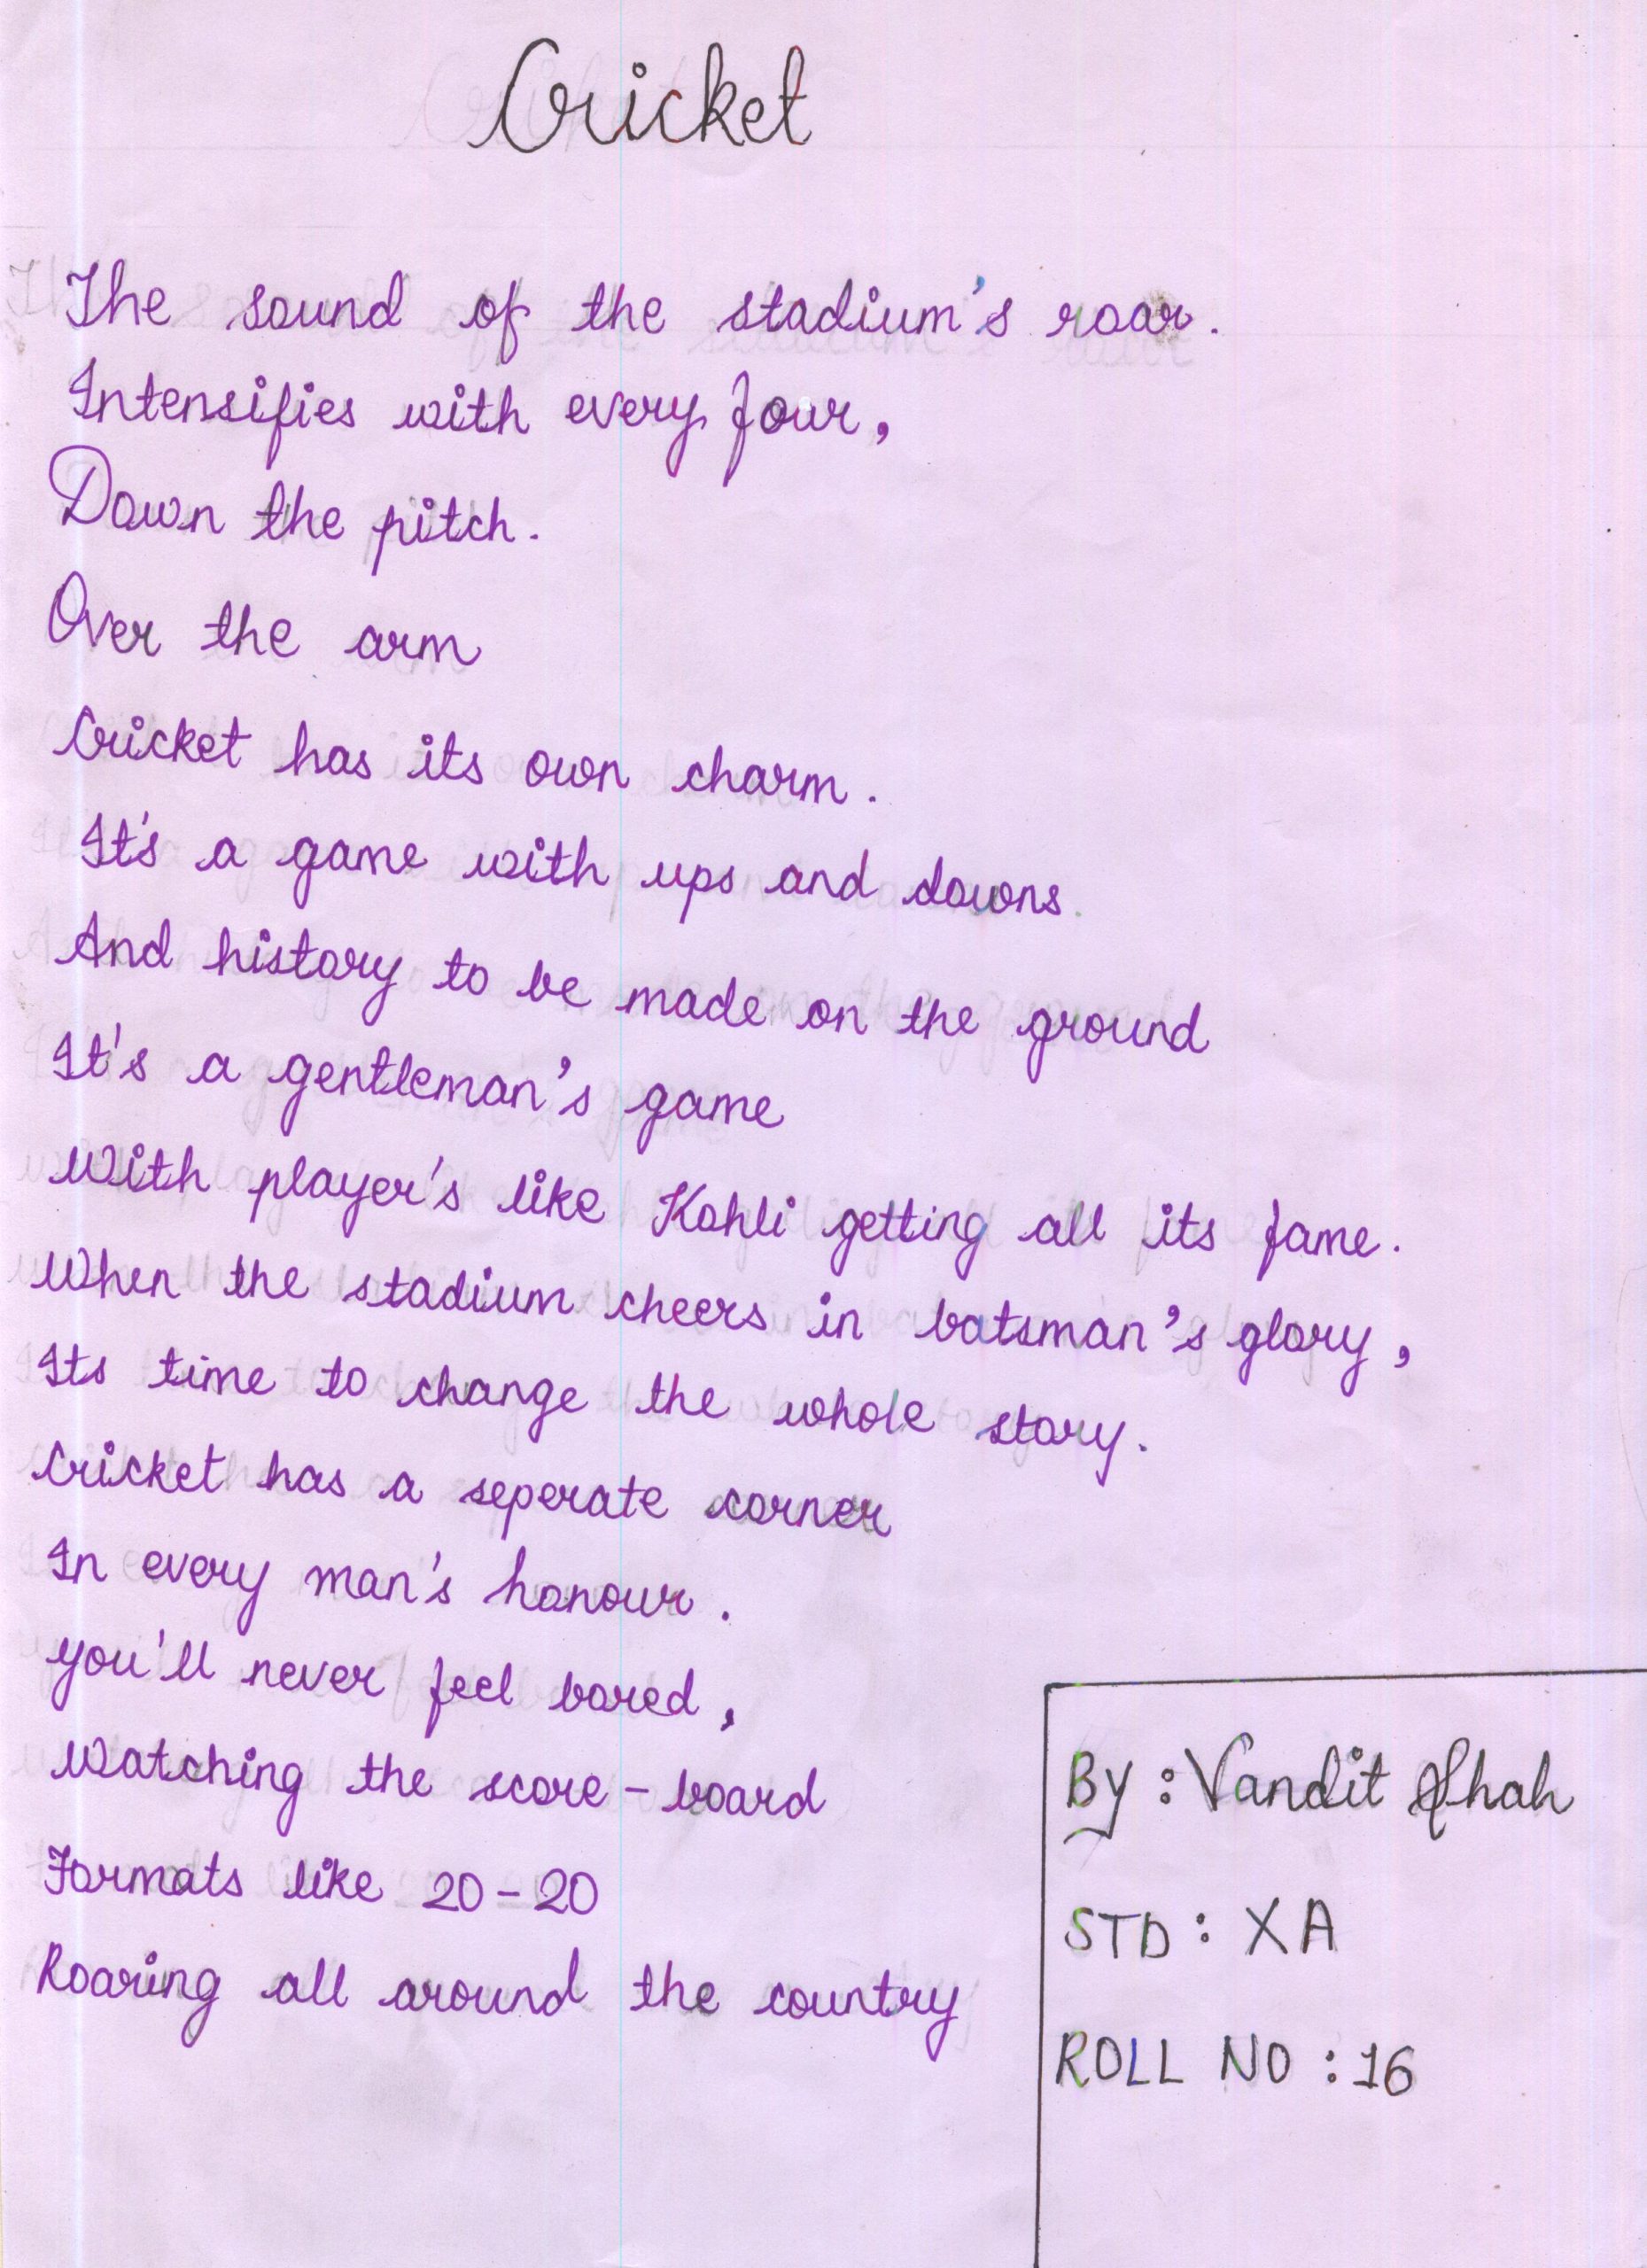 Cricket
The sound of the stadium's roar.
Intensifies with every four,
Down the pitch.
Over the arm
Cricket has its own charm.
It's a game with ups and downs.
And history to be made on the ground
It's a gentleman's game
With player's like Kohli getting all its fame.
When the stadium cheers in batsman's glory,
Its time to change the whole story.
Cricket has a seperate corner
In every man's honour.
you'll never feel bored,
Watching the score-board
Formats like 20-20
Roaring all around the country
By : Vandit Shah
STD : XA
ROLL NO : 16